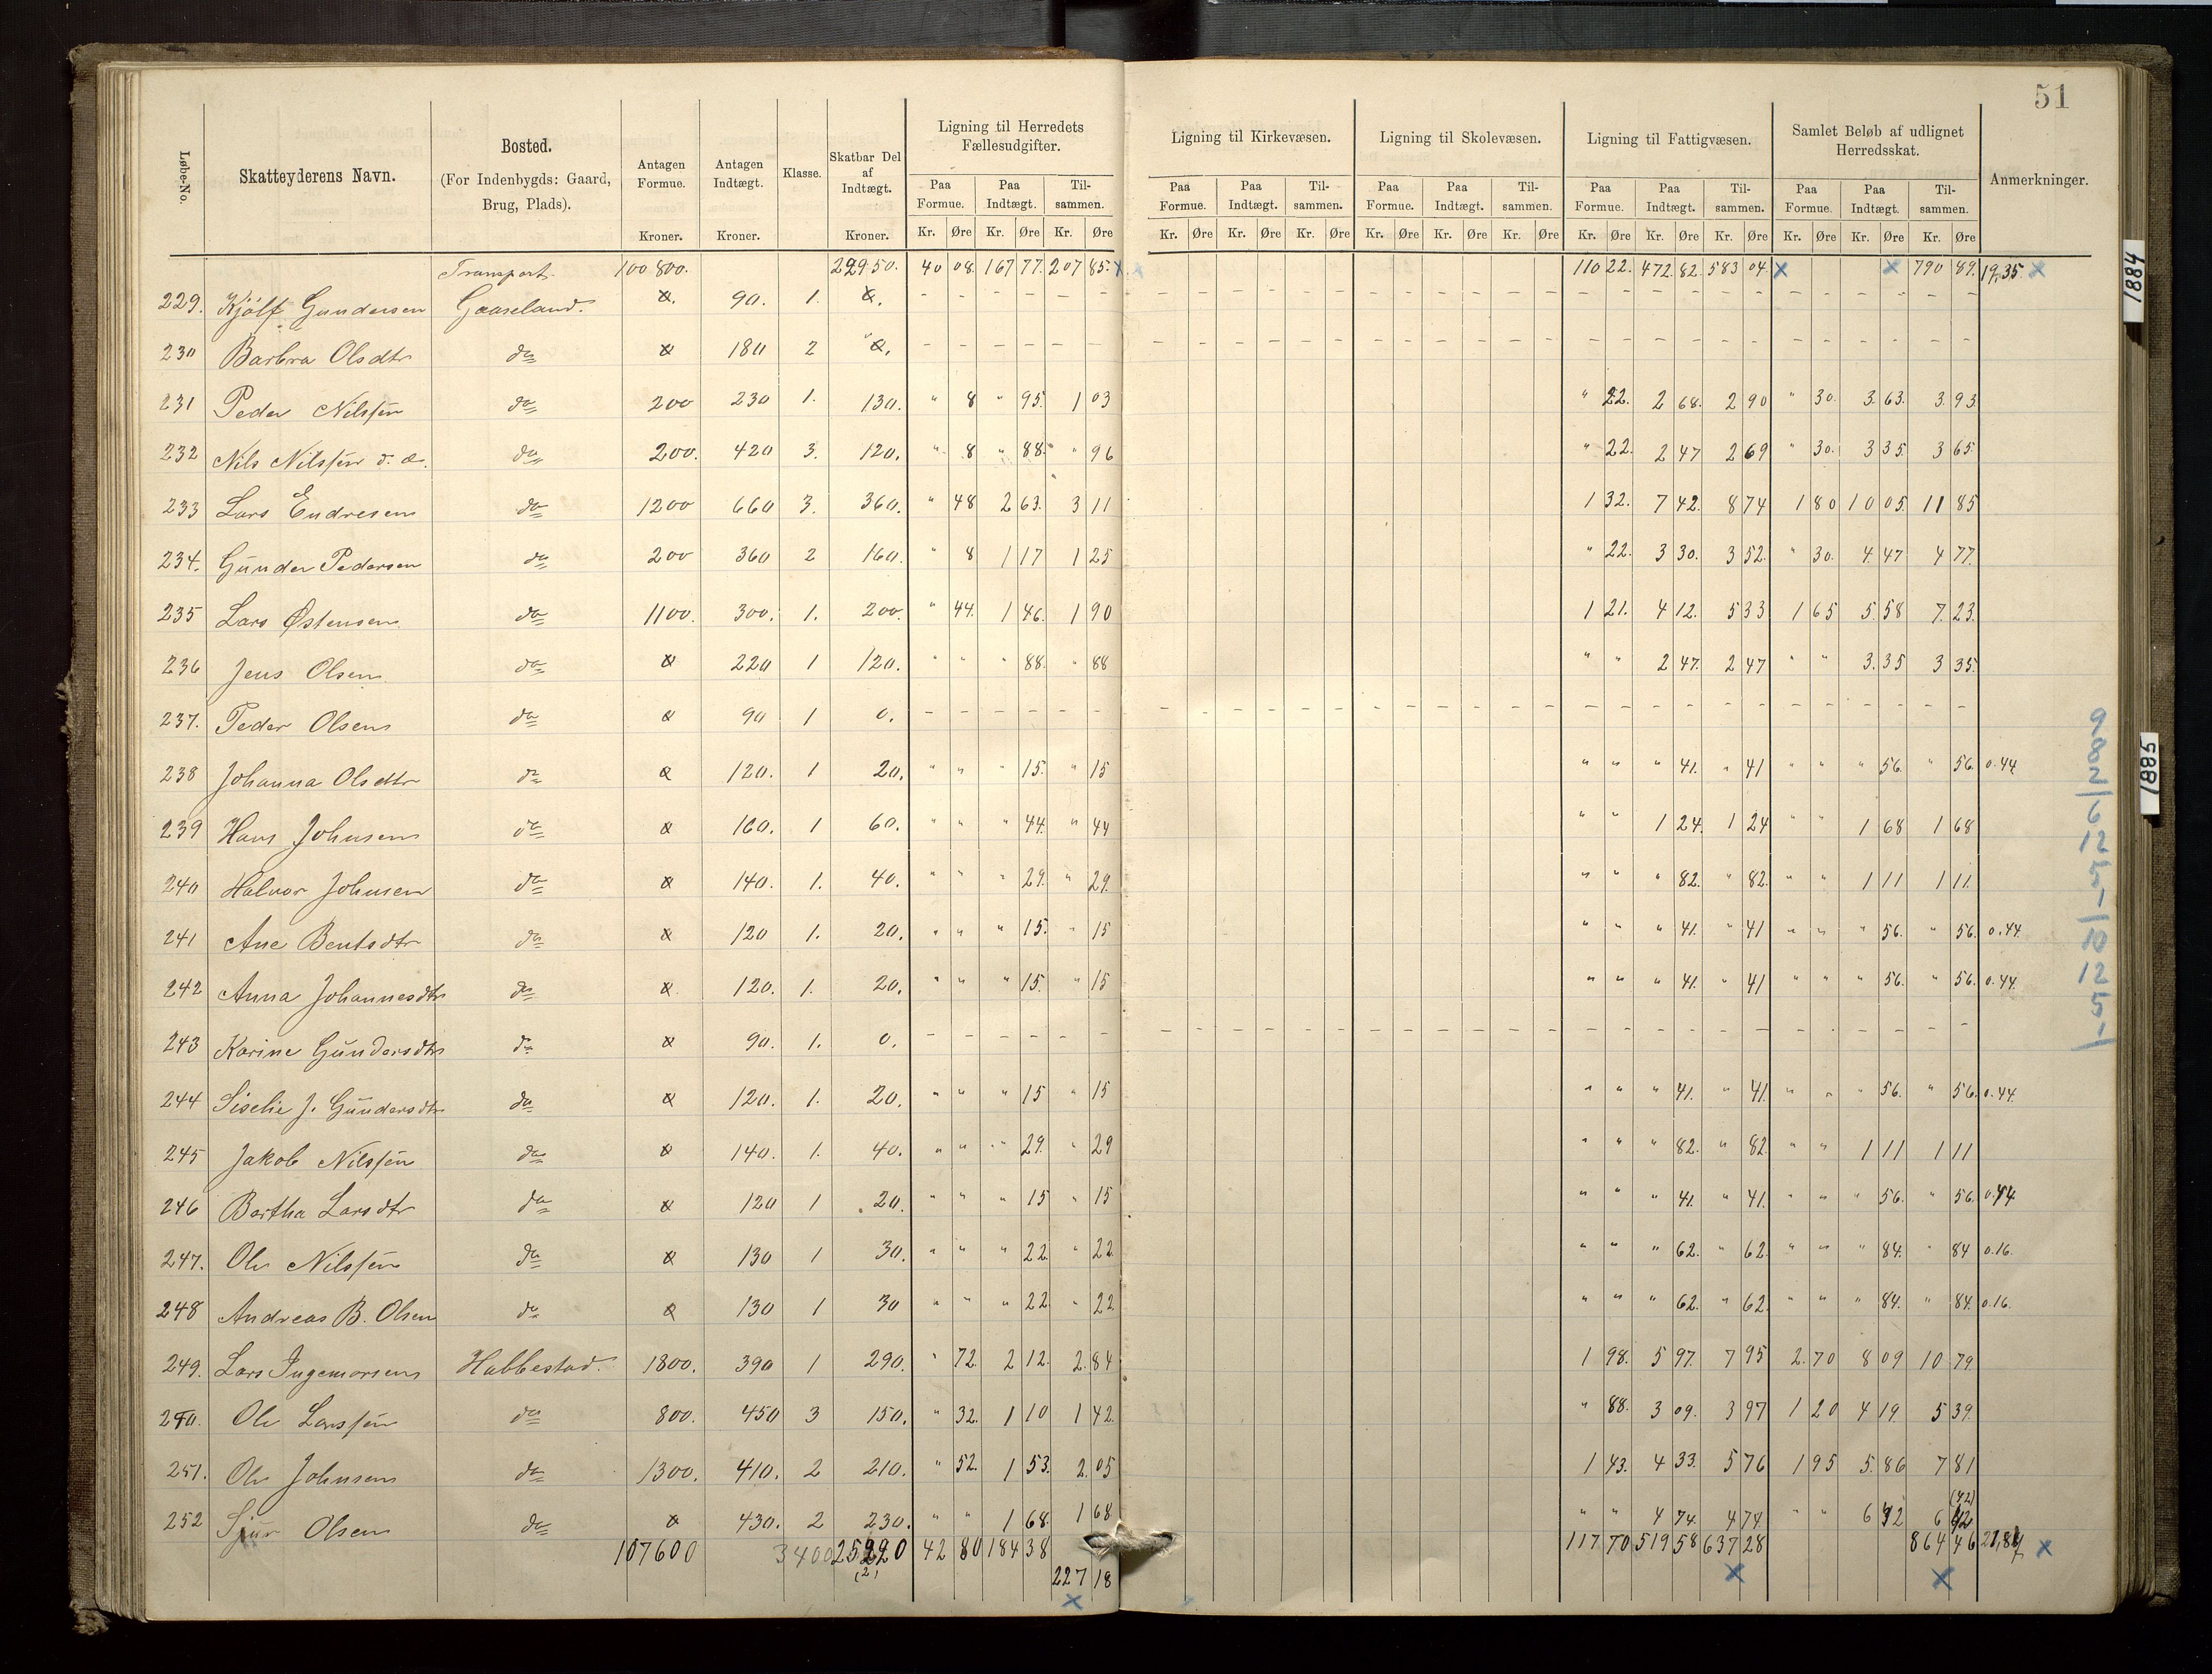 51
Løbe-No. Skatteyderens Navn. Bosted. (For Indenbygds: Gaard, Brug, Plads). Antagen Formue. Kroner. Antagen Indtægt. Kroner. Klasse. Skatbar Del af Indtægt. Kroner. Ligning til Herredets Fællesudgifter. Ligning til Kirkevæsen. Ligning til Skolevæsen. Ligning til Fattigvæsen. Samlet Beløb af udlignet Herredsskat. Anmerkninger.
Paa Formue. Paa Indtægt. Til- sammen. Paa Formue. Paa Indtægt. Til- sammen. Paa Formue. Paa Indtægt. Til- sammen. Paa Formue. Paa Indtægt. Til- sammen. Paa Formue. Paa Indtægt. Til- sammen.
Kr. Øre Kr. Øre Kr. Øre Kr. Øre Kr. Øre Kr. Øre Kr. Øre Kr. Øre Kr. Øre Kr. Øre Kr. Øre Kr. Øre Kr. Øre Kr. Øre Kr. Øre
Transport. 100 800. 22950. 40 08. 167 77. 207 85. x 110 22. 472 82. 583 04. x x 790 89. 19,35 x
229. Kjølf Gundersen Gaaseland. 0. 90. 1. 0. - - - - - - - - - - - - - - - - - - - - - - - - - - - - - -
230 Barbra Olsdtr do 0 180 2 0. - - - - - - - - - - - - - - - - - - - - - - - - - - - - - -
231 Peder Nilssen do 200 230 1. 130. " 8 " 95. 1 03 " 22. 2 68. 2 90 " 30. 3. 63. 3. 93.
232 Nils Nilssen d. æ. do 200. 420 3. 120. " 8 " 88. " 96 " 22. 2 47 2 69 " 30. 3 35. 3 65.
233 Lars Endresen do 1200 660 3. 360. " 48 2 63. 3 11 1 32. 7 42. 8 74 1 80 10 05. 11 85
234. Gunder Pedersen do 200 360 2 160. " 8 1 17 1 25 " 22. 3 30. 3 52. " 30. 4. 47 4 77.
235 Lars Østensen do 1100. 300. 1. 200. " 44. 1 46. 1 90 1 21. 4 12. 5 33 1 65 5. 58 7. 23.
236 Jens Olsen do 0 220 1 120. " " " 88. " 88 " " 2 47. 2 47 " " 3. 35 3 35.
237. Peder Olsen do 0 90 1 0. - - - - - - - - - - - - - - - - - - - - - - - - - - - - - -
238 Johanna Olsdtr do 0 120. 1 20. " " " 15. " 15 " " " 41. " 41 " " " 56. " 56. 0.44.
239 Hans Johnsen do 0 160. 1 60. " " " 44. " 44 " " 1 24. 1 24 " " 1 68 1 68
240 Halvor Johnsen do 0 140. 1. 40. " " " 29. " 29. " " " 82. " 82. " " 1 11 1 11.
241 Ane Bentsdtr do 0 120 1. 20. " " " 15. " 15 " " " 41. " 41 " " " 56. " 56. 0.44.
242 Anna Johannesdtr do 0 120. 1. 20. " " " 15. " 15 " " " 41. " 41 " " " 56. " 56. 0.44.
243 Karine Gundersdtr do 0 90. 1. 0. - - - - - - - - - - - - - - - - - - - - - - - - - - - - - -
244 Siselie J. Gundersdtr do 0 120. 1. 20. " " " 15 " 15 " " " 41. " 41. " " " 56. " 56. 0.44.
245 Jakob Nilssen do 0 140. 1. 40. " " " 29. " 29 " " " 82. " 82. " " 1 11 1 11
246 Bertha Larsdtr do 0 120 1 20. " " " 15 " 15 " " " 41. " 41. " " " 56. " 56. 0.44
247. Ole Nilssen do 0 130 1 30. " " " 22. " 22. " " " 62. " 62. " " " 84. " 84 0.16.
248 Andreas B. Olsen do 0 130 1 30 " " " 22. " 22 " " " 62. " 62. " " " 84. " 84. 0.16.
249. Lars Ingemorsen Habbestad. 1800. 390 1 290. " 72. 2 12. 2. 84 1 98. 5 97. 7 95 2. 70 8 09 10 79.
250. Ole Larssen do 800. 450 3 150. " 32. 1 10 1 42. " 88. 3 09. 3 97 1 20 4 19. 5 39.
251. Ole Johnsen do 1300. 410. 2 210. " 52. 1 53. 2. 05 1 43. 4 33. 5 76 1 95 5. 86 7 81
252 Sjur Olsen do 0 430. 2 230. " " 1 68. 1 68. " " 4 74. 4 74. " " 6 42 6 42 (42)
107600 3400 25220 (2) 42 80 184 38 117 70 519 58 637 28 864 46 21,87 x
227 18 x x
x
982/6
125-/10
125-/
1884
1885